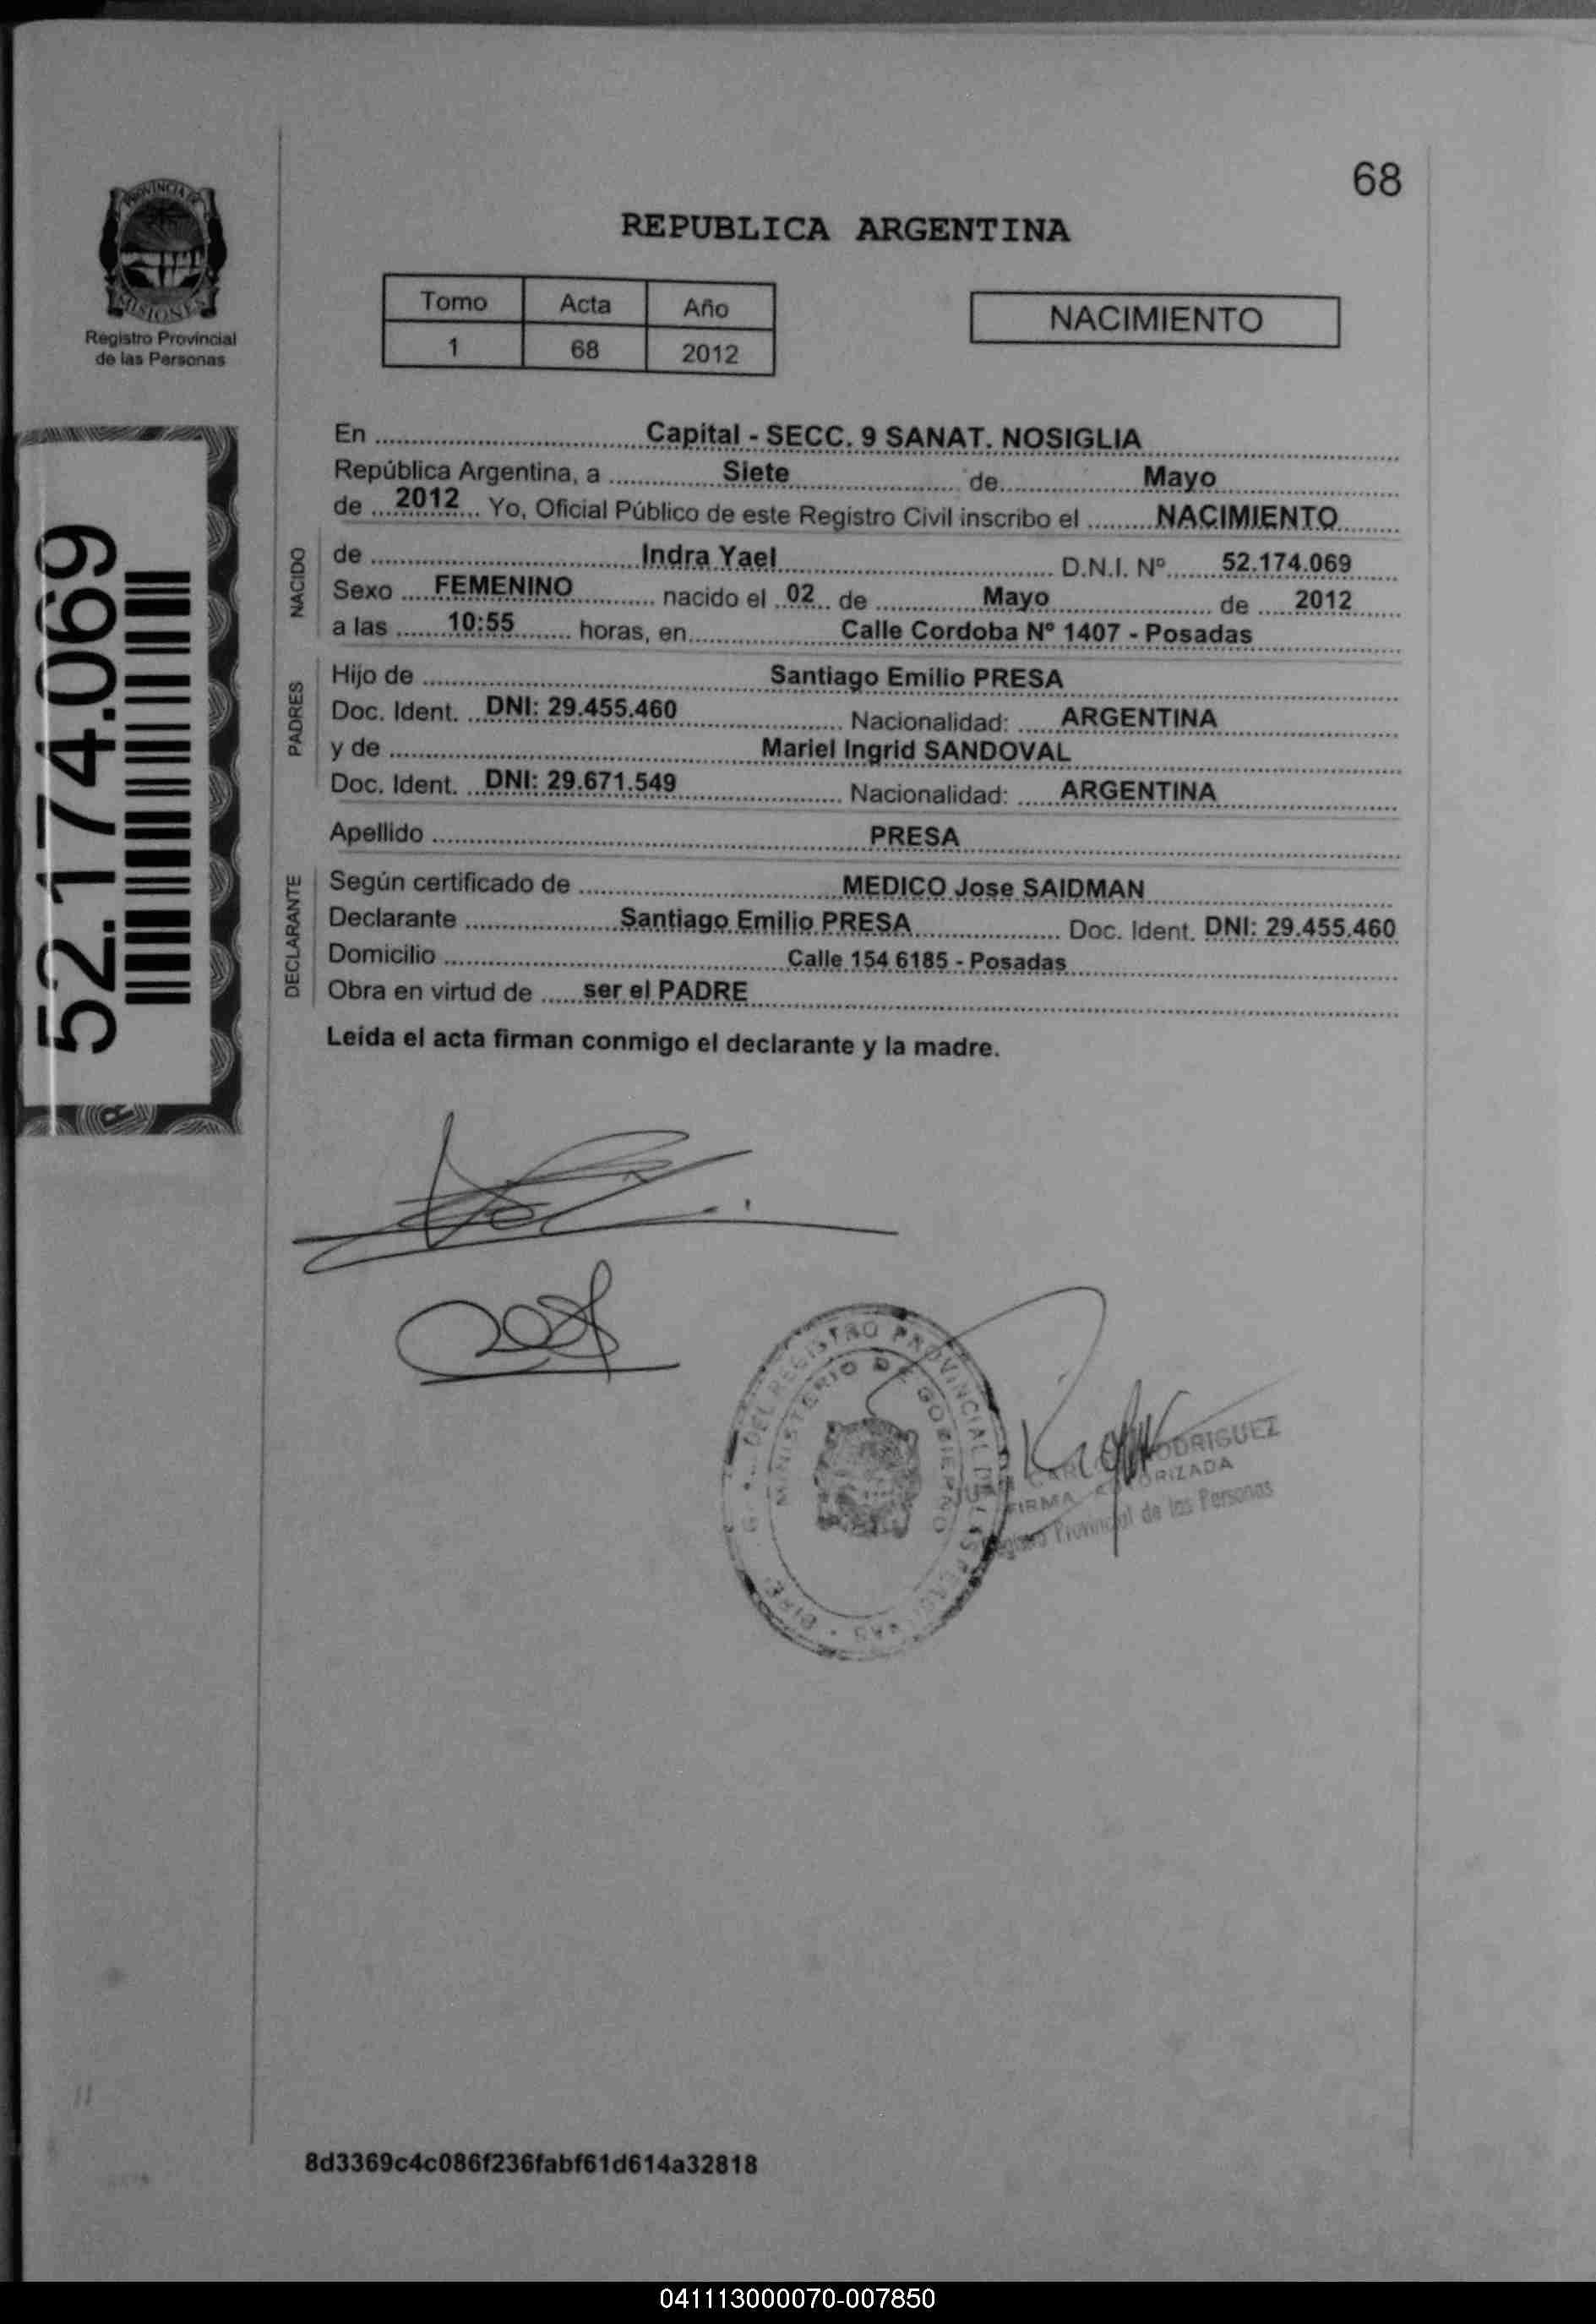 68
PROVINCIA DE
MISIONES
Registro Provincial
de las Personas
REPUBLICA ARGENTINA
Tomo Acta Año
1 68 2012
NACIMIENTO
52.174.069
En Capital - SECC. 9 SANAT. NOSIGLIA
República Argentina, a Siete de Mayo
de 2012 Yo, Oficial Público de este Registro Civil inscribo el NACIMIENTO
NACIDO
de Indra Yael D.N.I. Nº 52.174.069
Sexo FEMENINO nacido el 02 de Mayo de 2012
a las 10:55 horas, en Calle Cordoba Nº 1407 - Posadas
PADRES
Hijo de Santiago Emilio PRESA
Doc. Ident. DNI: 29.455.460 Nacionalidad: ARGENTINA
y de Mariel Ingrid SANDOVAL
Doc. Ident. DNI: 29.671.549 Nacionalidad: ARGENTINA
Apellido PRESA
DECLARANTE
Según certificado de MEDICO Jose SAIDMAN
Declarante Santiago Emilio PRESA Doc. Ident. DNI: 29.455.460
Domicilio Calle 154 6185 - Posadas
Obra en virtud de ser el PADRE
Leida el acta firman conmigo el declarante y la madre.
DEL REGISTRO PROVINCIAL DE LAS PERSONAS
MINISTERIO DE GOBIERNO
JUAN CARLOS RODRIGUEZ
FIRMA AUTORIZADA
Registro Provincial de las Personas
8d3369c4c086f236fabf61d614a32818
041113000070-007850